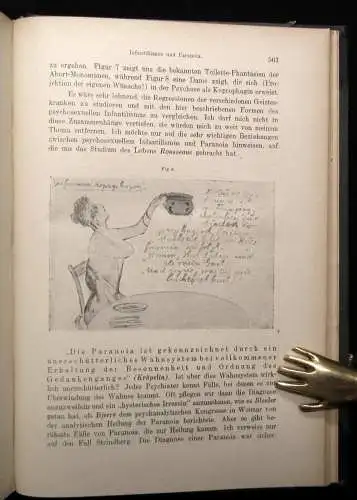 Infantilismus und Paranoia. 561
zu ergehen. Figur 7 zeigt uns die bekannten Toilette-Phantasien der
Abort-Monomanen, während Figur 8 eine Dame zeigt, die sich (Pro-
jektion der eigenen Wünsche!) in der Psychose als Koprophagin erweist
Es wäre sehr lehrend, die Regressionen der verschiedenen Geistes-
kranken zu studieren und mit den hier beschriebenen Formen des
psychosexuellen Infantilismus zu vergleichen. Ich darf noch nicht in
diese Zusammenhänge vertiefen, sie würden mich zu weit von meinem
Thema entfernen. Ich möchte nur auf die sehr wichtigen Beziehungen
zwischen psychosexuellem Infantilismus und Paranoia hinweisen, auf
die uns das Studium des Lebens Rousseaus gebracht hat.
Fig. 8.
„Die Paranoia ist gekennzeichnet durch ein
unerschütterliches Wahnsystem bei vollkommener
Erhaltung der Besonnenheit und Ordnung des
Gedankenganges" (Kräpelin). Ist aber dies Wahnsystem wirk-
lich unerschütterlich? Jeder Psychiater kennt Fälle, bei denen es zur
Überwindung des Wahnes kommt. Oft pflegen wir dann die Diagnose
umzuwandeln und ein „hysterisches Irresein" anzunehmen, wie es Bleuler
getan hat, als Bjerre dem psychoanalytischen Kongresse in Weimar von
der analytischen Heilung der Paranoia berichtete. Aber es gibt be-
rühmte Fälle von Paranoia, die zur Heilung kamen. Ich verweise nur
auf den Fall Strindberg. Die Diagnose einer Paranoia war sicher-